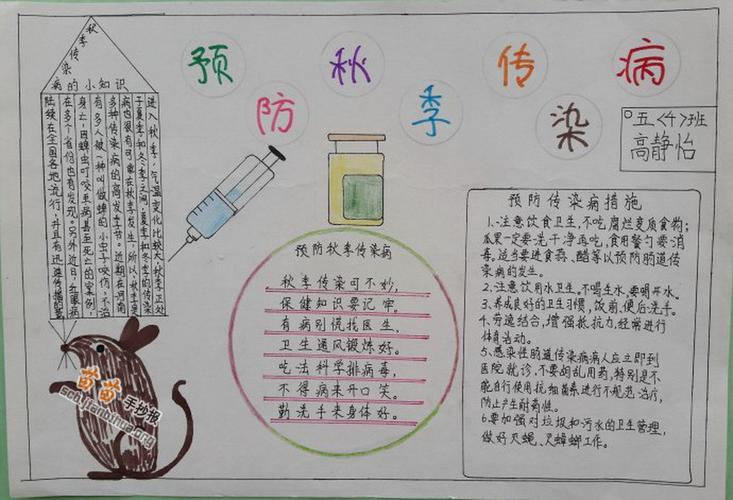 预防秋季传染病
秋季传染
病的小知识
进入秋季,气温变化比较大,秋季正处
于夏季和冬季之间,夏季和冬季的传染
病也很有可能在秋季发生,所以,秋季是
多种传染病的高发季节。近期在河南
有多人被一种叫做蜱的小虫子咬伤,不治
身亡,因蜱虫叮咬至病甚至死亡的案例,
在多个省份也有发现,另外近日,红眼病
陆续在全国各地流行,并且有迅速传播的
苗苗手抄报
五<4>班
高静怡
预防秋季传染病
秋季传染可不妙,
保健知识要记牢。
有病别慌找医生,
卫生通风锻炼好。
吃法科学排病毒,
不得病来开口笑。
勤洗手来身体好。
预防传染病措施
1、注意饮食卫生,不吃腐烂变质食物;
瓜果一定要洗干净再吃,食用餐勺要消
毒。适当要进食蒜、醋等以预防肠道传
染病的发生。
2、注意饮用水卫生,不喝生水,要喝开水。
3、养成良好的卫生习惯,饭前,便后洗手。
4、劳逸结合,增强抵抗力,经常进行
体育活动。
5、感染性肠道传染病病人应立即到
医院就诊,不要胡乱用药,特别是不
能自行使用抗细菌素进行不规范治疗,
防止产生耐药性。
6要加强对垃圾和污水的卫生管理,
做好灭蝇、灭蟑螂工作。